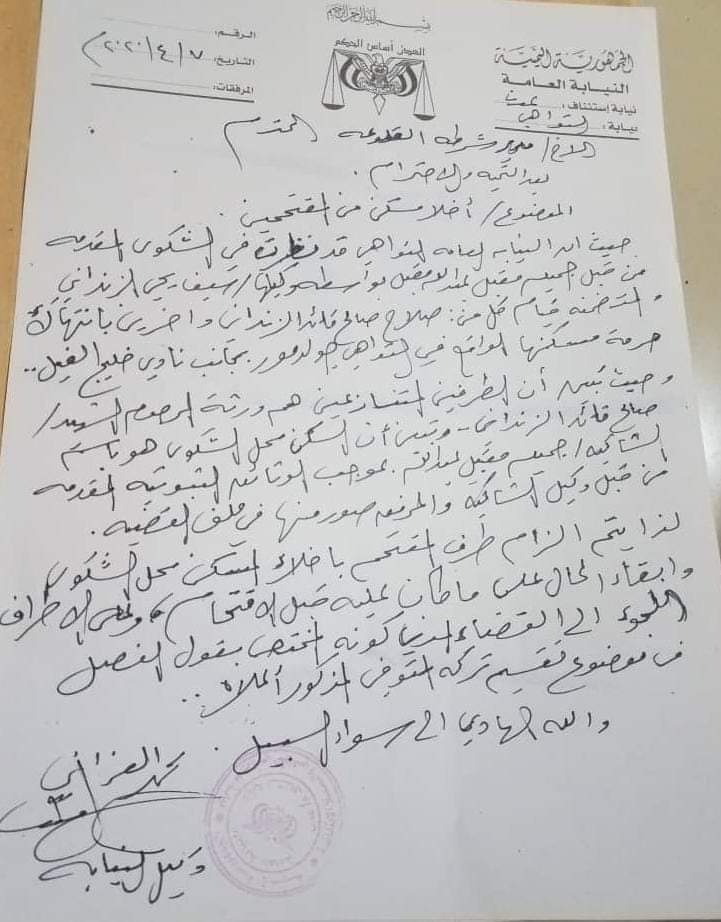 بسم الله الرحمن الرحيم
الجمهورية اليمنية
النيابة العامة
نيابة إستئناف: عدن
نيابة: التواهي
العدل أساس الحكم
الرقم:
التاريخ: ٧/٤/٢٠٢٠م
المرفقات:
الاخ/ مدير شرطه القلوعه المحترم
بعد التحيه والاحترام.
الموضوع/ أخلاء مسكن من المقتحمين.
حيث ان النيابه العامه التواهي قد نظرت في الشكوى المقدمه
من قبل جميله مقبل عبدالله مقبل بواسطه وكيلها/ سيف يحي الزنداني
والمتضمنه قيام كل من: صلاح صالح قائد الزنداني واخرين بانتهاك
حرمة مسكنها الواقع في التواهي جولدمور بجانب نادي خليج الفيل..
وحيث تبين أن الطرفين المتنازعين هم ورثة المرحوم الشهيد/
صالح قائد الزنداني - وتبين أن المسكن محل الشكوى هو باسم
الشاكيه/ جميله مقبل عبدالله بموجب الوثائق الثبوتيه المقدمه
من قبل وكيل الشاكيه والمرفقه صور منها في ملف القضيه.
لذا يتم الزام طرف المقتحم باخلاء المسكن محل الشكوى
وابقاء الحال على ماكان عليه قبل الاقتحام، وعلى الاطراف
اللجوء الى القضاء المدني كونه المختص بقول الفصل
في موضوع تقسيم تركه المتوفي المذكور أعلاه..
والله الهادي الى سواء السبيل.
محمد العزاني
وكيل النيابه